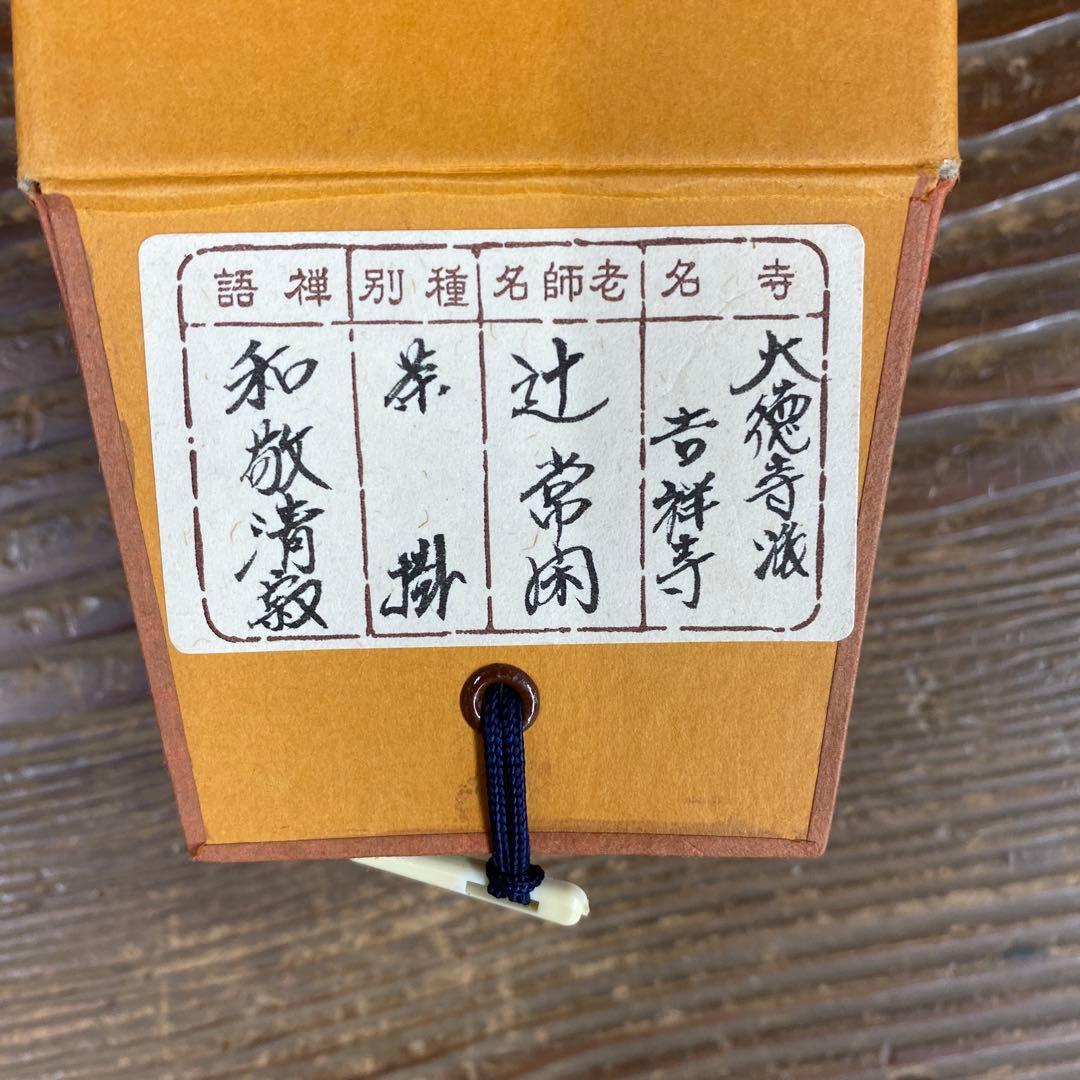 寺名
大徳寺派
吉祥寺
老師名
辻常閑
種別
茶掛
禅語
和敬清寂